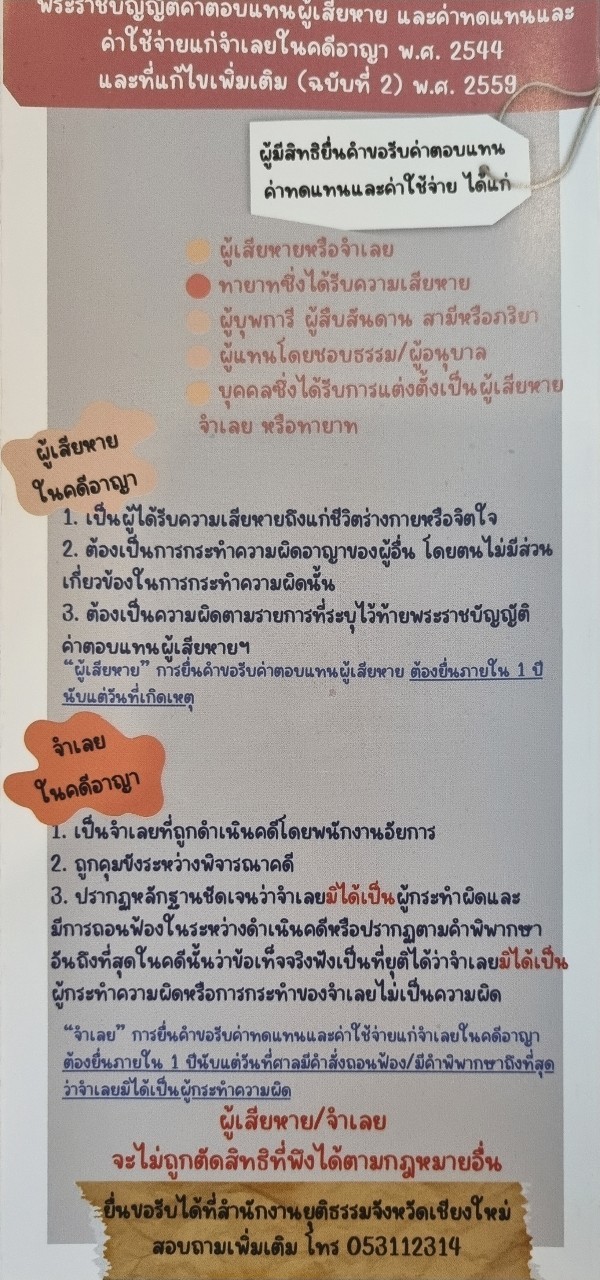 พระราชบัญญัติค่าตอบแทนผู้เสียหาย และค่าทดแทนและ
ค่าใช้จ่ายแก่จำเลยในคดีอาญา พ.ศ. 2544
และที่แก้ไขเพิ่มเติม (ฉบับที่ 2) พ.ศ. 2559
ผู้มีสิทธิยื่นคำขอรับค่าตอบแทน
ค่าทดแทนและค่าใช้จ่าย ได้แก่
ผู้เสียหายหรือจำเลย
ทายาทซึ่งได้รับความเสียหาย
ผู้บุพการี ผู้สืบสันดาน สามีหรือภริยา
ผู้แทนโดยชอบธรรม/ผู้อนุบาล
บุคคลซึ่งได้รับการแต่งตั้งเป็นผู้เสียหาย
จำเลย หรือทายาท
ผู้เสียหาย
ในคดีอาญา
1. เป็นผู้ได้รับความเสียหายถึงแก่ชีวิตร่างกายหรือจิตใจ
2. ต้องเป็นการกระทำความผิดอาญาของผู้อื่น โดยตนไม่มีส่วน
เกี่ยวข้องในการกระทำความผิดนั้น
3. ต้องเป็นความผิดตามรายการที่ระบุไว้ท้ายพระราชบัญญัติ
ค่าตอบแทนผู้เสียหายฯ
“ผู้เสียหาย” การยื่นคำขอรับค่าตอบแทนผู้เสียหาย ต้องยื่นภายใน 1 ปี
นับแต่วันที่เกิดเหตุ
จำเลย
ในคดีอาญา
1. เป็นจำเลยที่ถูกดำเนินคดีโดยพนักงานอัยการ
2. ถูกคุมขังระหว่างพิจารณาคดี
3. ปรากฏหลักฐานชัดเจนว่าจำเลยมิได้เป็นผู้กระทำผิดและ
มีการถอนฟ้องในระหว่างดำเนินคดีหรือปรากฏตามคำพิพากษา
อันถึงที่สุดในคดีนั้นว่าข้อเท็จจริงฟังเป็นที่ยุติได้ว่าจำเลยมิได้เป็น
ผู้กระทำความผิดหรือการกระทำของจำเลยไม่เป็นความผิด
“จำเลย” การยื่นคำขอรับค่าทดแทนและค่าใช้จ่ายแก่จำเลยในคดีอาญา
ต้องยื่นภายใน 1 ปีนับแต่วันที่ศาลมีคำสั่งถอนฟ้อง/มีคำพิพากษาถึงที่สุด
ว่าจำเลยมิได้เป็นผู้กระทำความผิด
ผู้เสียหาย/จำเลย
จะไม่ถูกตัดสิทธิที่พึงได้ตามกฎหมายอื่น
ยื่นขอรับได้ที่สำนักงานยุติธรรมจังหวัดเชียงใหม่
สอบถามเพิ่มเติม โทร 053112314